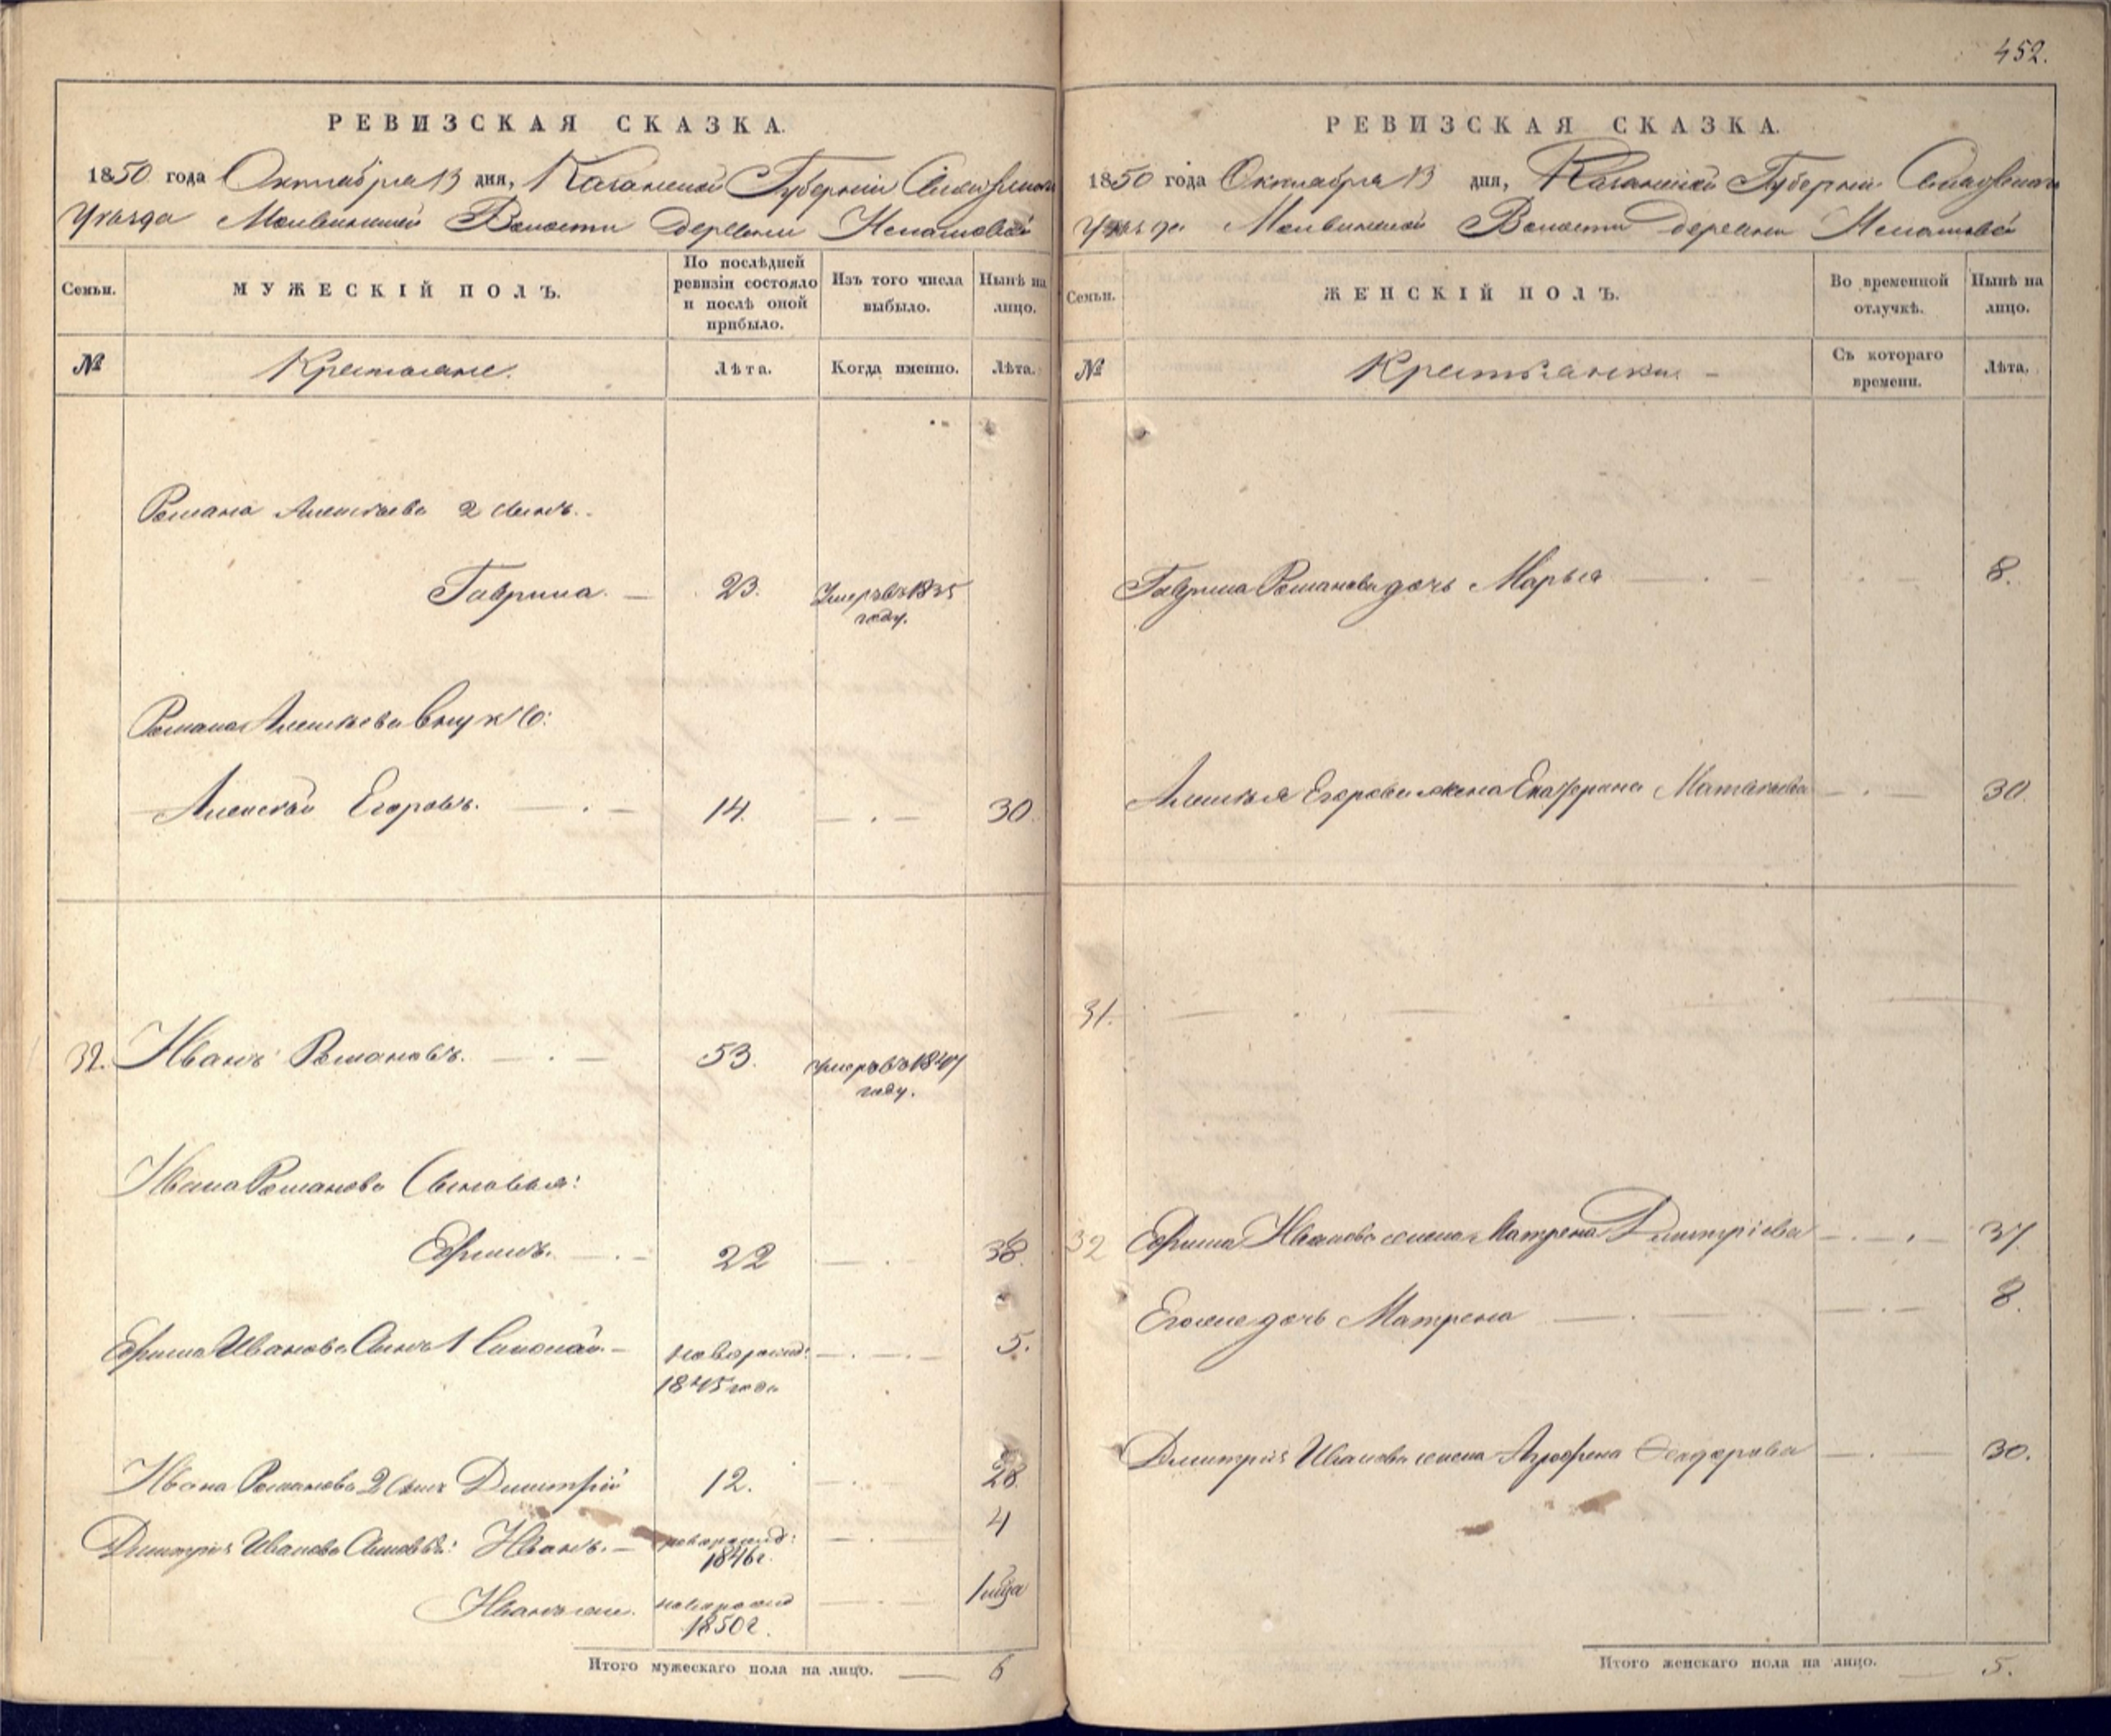 452.
РЕВИЗСКАЯ СКАЗКА.
1850 года Октября 13 дня, Казанской Губернии
Уезда Волости деревни
Семьи.
МУЖЕСКІЙ ПОЛЪ.
По послѣдней ревизіи состояло и послѣ оной прибыло.
Изъ того числа выбыло.
Нынѣ на лицо.
№
Крестьяне.
Лѣта.
Когда именно.
Лѣта.
Романа Алексѣева 2 сынъ.
Гаврила. 23. Умеръ въ 1835
году.
Романа Алексѣева внукъ:
Алексѣй Егоровъ. 14. 30
32. Иванъ Романовъ. 53. умеръ въ 1847
году.
Ивана Романова Сыновья:
Ефимъ. 22 38.
Ефима Иванова Сынъ 1 Николай новорожд: 5.
1845 года
Ивана Романова 2 сынъ Дмитрій 12. 28.
Дмитрія Иванова Сыновья: Иванъ. новорожд: 4
1846 г.
Иванъ же. новорожд
1850 г.
Итого мужескаго пола на лицо. 6
РЕВИЗСКАЯ СКАЗКА.
1850 года Октября 13 дня, Казанской Губерніи
Уѣзда Волости деревни
Семьи.
ЖЕНСКІЙ ПОЛЪ.
Во временной отлучкѣ.
Нынѣ на лицо.
№
Крестьянки
Съ котораго времени.
Лѣта.
Гаврила Романова дочь Марья 8.
Алексѣя Егорова жена Екатерина Матвѣева 30.
31.
32 Ефима Иванова жена Матрена Дмитріева 37
Его же дочь Матрена 8.
Дмитрія Иванова жена Аграфена Федорова 30.
Итого женскаго пола на лицо. 5.